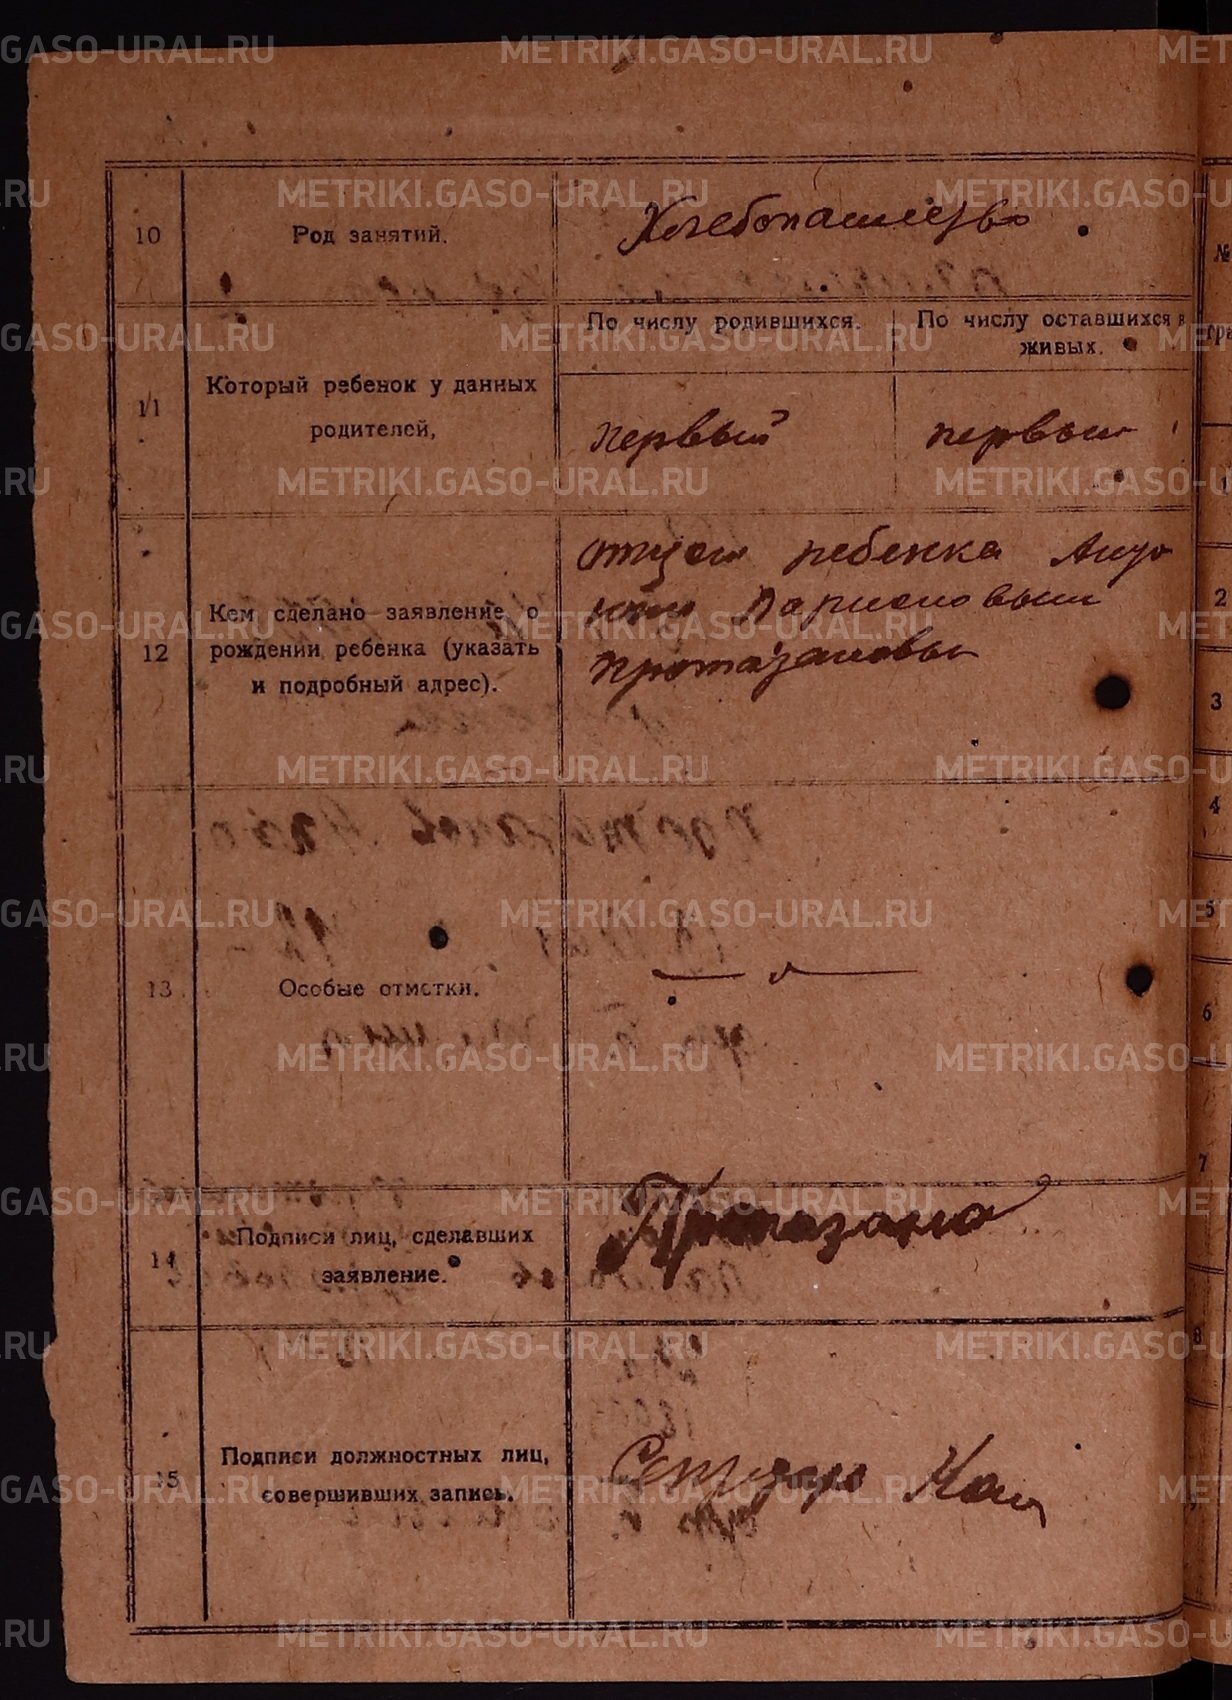 METRIKI.GASO-URAL.RU
10
Род занятий.
Хлебопашество
11
Который ребенок у данных
родителей,
По числу родившихся.
По числу оставшихся в
живых.
первый
первый
12
Кем сделано заявление о
рождении ребенка (указать
и подробный адрес).
отцом ребенка
Ларионовым
Протазановы
13
Особые отметки.
14
Подписи лиц, сделавших
заявление.
Протазано
15
Подписи должностных лиц,
совершивших запись.
№
гра
1
2
3
4
5
6
7
8